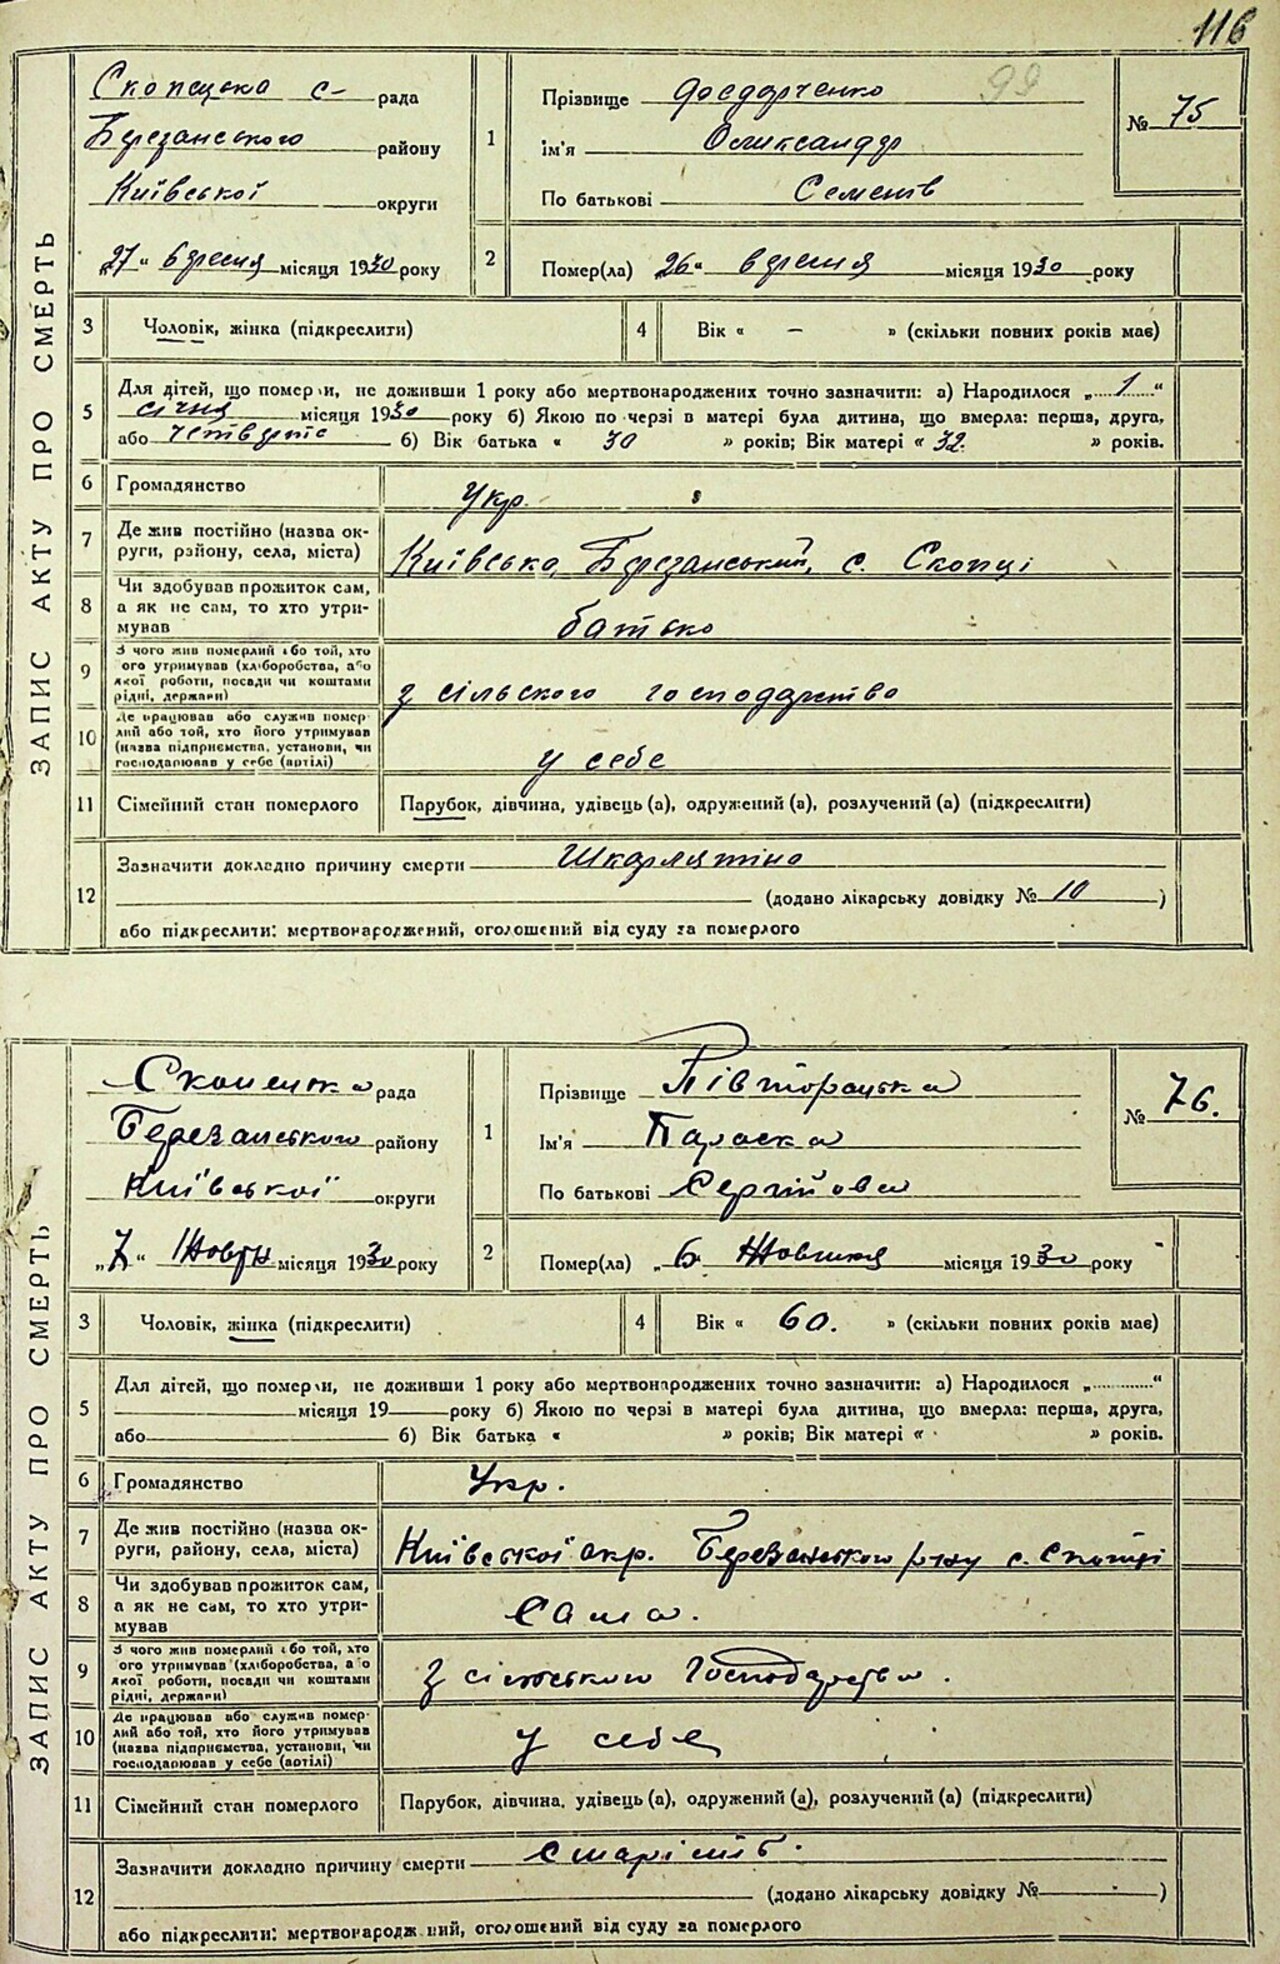 116
99
ЗАПИС АКТУ ПРО СМЕРТЬ
Скопецька с- рада
Березанського району
Київської округи
„27“ вересня місяця 1930 року
1
Прізвище Федорченко
Ім'я Олександр
По батькові Семенів
№ 75
2
Помер(ла) „26“ вересня місяця 1930 року
3 Чоловік, жінка (підкреслити)
4 Вік « — » (скільки повних років має)
5 Для дітей, що померли, не доживши 1 року або мертвонароджених точно зазначити: а) Народилося „1“
січня місяця 1930 року б) Якою по черзі в матері була дитина, що вмерла: перша, друга,
або четверте б) Вік батька « 30 » років; Вік матері « 32. » років.
6 Громадянство Укр.
7 Де жив постійно (назва ок-
руги, району, села, міста) Київська, Березанський, с. Скопці
8 Чи здобував прожиток сам,
а як не сам, то хто утри-
мував батько
9 З чого жив померлий або той, хто
його утримував (хліборобства, або
якої роботи, посади чи коштами
рідні, держави) з сільського господарства
10 Де працював або служив помер-
лий або той, хто його утримував
(назва підприємства, установи, чи
господарював у себе (артілі) у себе
11 Сімейний стан померлого Парубок, дівчина, удівець (а), одружений (а), розлучений (а) (підкреслити)
12 Зазначити докладно причину смерти Шкарлятіна
(додано лікарську довідку № 10 )
або підкреслити: мертвонароджений, оголошений від суду за померлого
ЗАПИС АКТУ ПРО СМЕРТЬ
Скопецька рада
Березанського району
Київської округи
„7“ Жовтн місяця 1930 року
1
Прізвище Півторацька
Ім'я Параска
По батькові Сергійовна
№ 76.
2
Помер(ла) „6 Жовтня місяця 1930 року
3 Чоловік, жінка (підкреслити)
4 Вік « 60. » (скільки повних років має)
5 Для дітей, що померли, не доживши 1 року або мертвонароджених точно зазначити: а) Народилося „ “
місяця 19 року б) Якою по черзі в матері була дитина, що вмерла: перша, друга,
або б) Вік батька « » років; Вік матері « » років.
6 Громадянство Укр.
7 Де жив постійно (назва ок-
руги, району, села, міста) Київської окр. Березанського р-ну с. Скопці
8 Чи здобував прожиток сам,
а як не сам, то хто утри-
мував Сама.
9 З чого жив померлий або той, хто
його утримував (хліборобства, або
якої роботи, посади чи коштами
рідні, держави) з сільського господарства.
10 Де працював або служив помер-
лий або той, хто його утримував
(назва підприємства, установи, чи
господарював у себе (артілі) у себе
11 Сімейний стан померлого Парубок, дівчина, удівець (а), одружений (а), розлучений (а) (підкреслити)
12 Зазначити докладно причину смерти Старість.
(додано лікарську довідку № )
або підкреслити: мертвонароджений, оголошений від суду за померлого